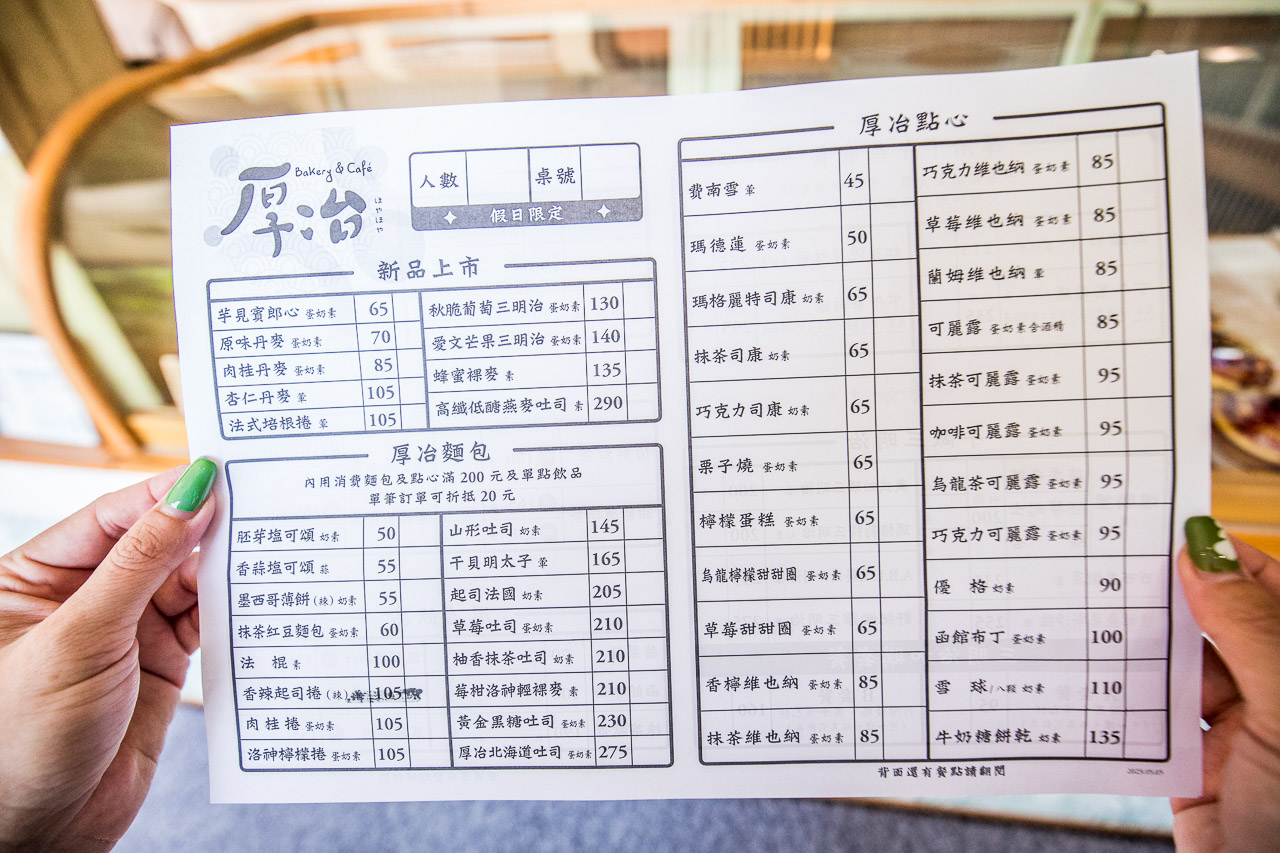 厚冶
Bakery & Café
ほやほや
人數 桌號
假日限定
新品上市
芋見賓郎心 蛋奶素 65
原味丹麥 蛋奶素 70
肉桂丹麥 蛋奶素 85
杏仁丹麥 葷 105
法式培根捲 葷 105
秋脆葡萄三明治 蛋奶素 130
愛文芒果三明治 蛋奶素 140
蜂蜜裸麥 素 135
高纖低醣燕麥吐司 素 290
厚冶麵包
內用消費麵包及點心滿 200 元及單點飲品
單筆訂單可折抵 20 元
胚芽塩可頌 奶素 50
香蒜塩可頌 蒜 55
墨西哥薄餅(辣) 奶素 55
抹茶紅豆麵包 蛋奶素 60
法 棍 素 100
香辣起司捲 (辣) 105
肉桂捲 蛋奶素 105
洛神檸檬捲 蛋奶素 105
山形吐司 奶素 145
干貝明太子 葷 165
起司法國 奶素 205
草莓吐司 蛋奶素 210
柚香抹茶吐司 奶素 210
莓柑洛神輕裸麥 素 210
黃金黑糖吐司 蛋奶素 230
厚冶北海道吐司 蛋奶素 275
厚冶點心
費南雪 葷 45
瑪德蓮 蛋奶素 50
瑪格麗特司康 奶素 65
抹茶司康 奶素 65
巧克力司康 奶素 65
栗子燒 蛋奶素 65
檸檬蛋糕 蛋奶素 65
烏龍檸檬甜甜圈 蛋奶素 65
草莓甜甜圈 蛋奶素 65
香檸維也納 蛋奶素 85
抹茶維也納 蛋奶素 85
巧克力維也納 蛋奶素 85
草莓維也納 蛋奶素 85
蘭姆維也納 葷 85
可麗露 蛋奶素含酒精 85
抹茶可麗露 蛋奶素 95
咖啡可麗露 蛋奶素 95
烏龍茶可麗露 蛋奶素 95
巧克力可麗露 蛋奶素 95
優 格 奶素 90
函館布丁 蛋奶素 100
雪 球/八顆 奶素 110
牛奶糖餅乾 奶素 135
背面還有餐點請翻閱
2025.05.05